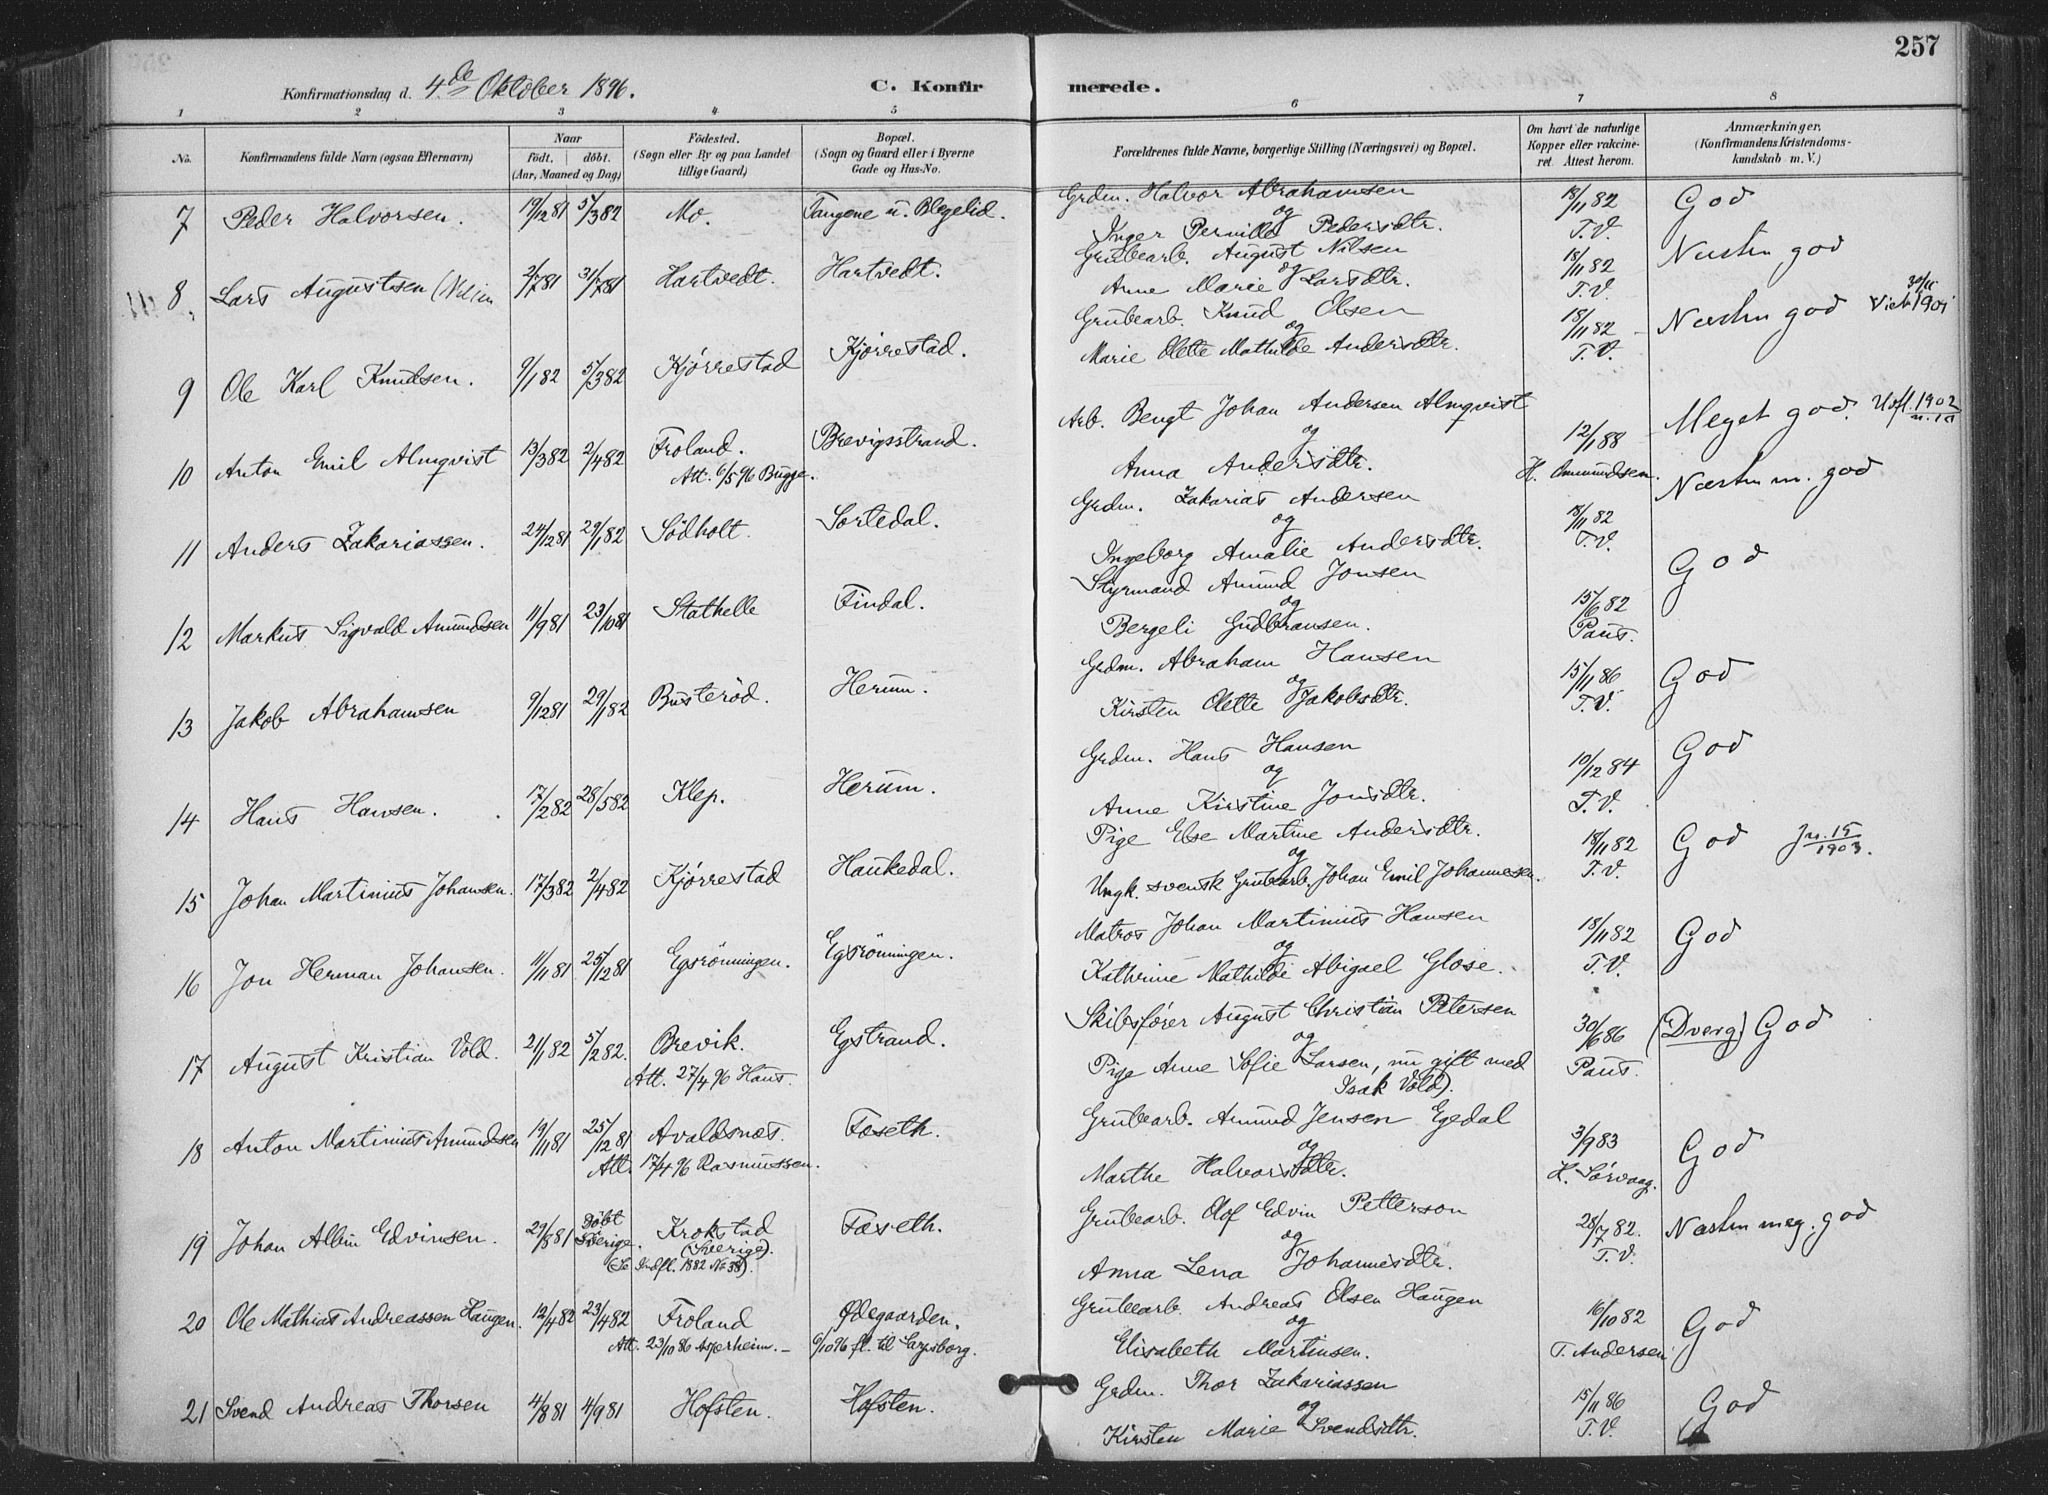 257
Konfirmationsdag d. 4de Oktober 1896. C. Konfirmerede.
1 2 3 4 5 6 7 8
No. Konfirmandens fulde Navn (ogsaa Efternavn) Naar født. døbt. (Aar, Maaned og Dag) Födested. (Sogn eller By og paa Landet tillige Gaard) Bopæl. (Sogn og Gaard eller i Byerne Gade og Hus-No. Forældrenes fulde Navne, borgerlige Stilling (Næringsvei) og Bopæl. Om havt de naturlige Kopper eller vakcineret. Attest herom. Anmærkninger. (Konfirmandens Kristendomskundskab m. V.)
7 Peder Halvorsen. 19/12 81 5/3 82 Mo. Tangene u. Blegelid. Grdm. Halvor Abrahamsen og Inger Pernille Pedersdtr. 18/11 82 T.V. God
8 Lars Augustsen (Nilsen 2/7 81 31/7 81 Hartvedt. Hartvedt. Grubearb. August Nilsen og Anne Marie Larsdtr. 18/11 82 T.V. Næsten god
9 Ole Karl Knudsen. 9/1 82 5/3 82 Kjørrestad Kjørrestad. Grubearb. Knud Olsen og Marie Olette Mathilde Andersdtr. 18/11 82 T.V. Næsten god Viet 30/11 1901
10 Anton Emil Almqvist 13/3 82 2/4 82 Froland. Att. 6/5 96 Bugge. Brevigsstrand. Arb. Bengt Johan Andersen Almqvist og Anna Andersdtr. 12/1 88 H. Amundsen. Meget god. Udfl. 1902 n. 10
11 Anders Zakariassen. 24/12 81 29/1 82 Södholt. Sortedal. Grdm. Zakarias Andersen og Ingeborg Amalie Andersdtr. 18/11 82 T.V. Næsten m. god
12 Markus Sigvald Amundsen 11/9 81 23/10 81 Stathelle Findal. Styrmand Amund Jonsen og Bergeli Gudbransen. 15/6 82 Paus. God
13 Jakob Abrahamsen 9/12 81 29/1 82 Busteröd. Herum. Grdm. Abraham Hansen og Kirsten Olette Jakobsdtr. 15/11 86 T.V. God
14 Hans Hansen. 17/2 82 28/5 82 Klep. Herum. Grdm. Hans Hansen og Anne Kirstine Jonsdtr. 10/12 84 T.V. God
15 Johan Martinius Johansen. 17/3 82 2/4 82 Kjørrestad Haukedal. Pige Else Martine Andersdtr. og Ungk. svensk Grubearb. Johan Emil Johannesen. 18/11 82 T.V. God Jn. 15 1903.
16 Jon Herman Johansen. 11/11 81 25/12 81 Egsrönningen. Egsrönningen. Matros Johan Martinius Hansen og Kathrine Mathilde Abigael Glose. 18/11 82 T.V. God
17 August Kristian Vold. 21/1 82 5/2 82. Brevik. Att. 27/4 96 Hans. Egstrand. Skibsfører August Christian Petersen og Pige Anne Sofie Larsen, nu gift med Isak Vold). 30/6 86 Paus. (Dverg) God
18 Anton Martinius Amundsen 19/11 81 25/12 81 Avaldsnæs. Att. 17/4 96 Rasmussen. Fæseth. Grubearb. Amund Jensen Egedal og Marthe Halvorsdtr. 3/9 83 H. Sørvaag. God
19 Johan Albin Edvinsen. 29/8 81 Döbt Sverige. Krokstad (Sverige). (Se Indfl. 1882 No 38). Fæseth. Grubearb. Olof Edvin Petterson og Anna Lena Johannesdtr. 28/7 82. T.V. Næsten meg. god
20 Ole Mathias Andreassen Haugen. 12/4 82 23/4 82 Froland Att. 23/10 86 Asperheim. Ødegaarden. 6/10 96 fl. til Sarpsborg. Grubearb. Andreas Olsen Haugen og Elisabeth Martinsen. 16/10 82 T. Andersen God
21 Svend Andreas Thorsen 4/8 81 4/9 81 Hofsten. Hofsten. Grdm. Thor Zakariassen og Kirsten Marie Svendsdtr. 15/11 86 T.V. God